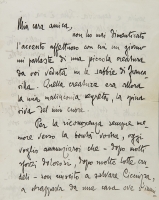 Mia cara amica,
non ho mai dimenticato
l'accento affettuoso con cui un giorno
mi parlaste di una piccola creatura
da voi veduta su le sabbie di Franca
villa. Quella creatura era allora
la mia malinconia segreta, la spina
viva del mio cuore.
Per la riconoscenza sempre me
more verso la bontà vostra, oggi
voglio annunziarvi che - dopo molti
sforzi dolorosi, dopo molte lotte cru
deli - son riuscito a salvare Cicciuzza,
a strapparla da una casa ove